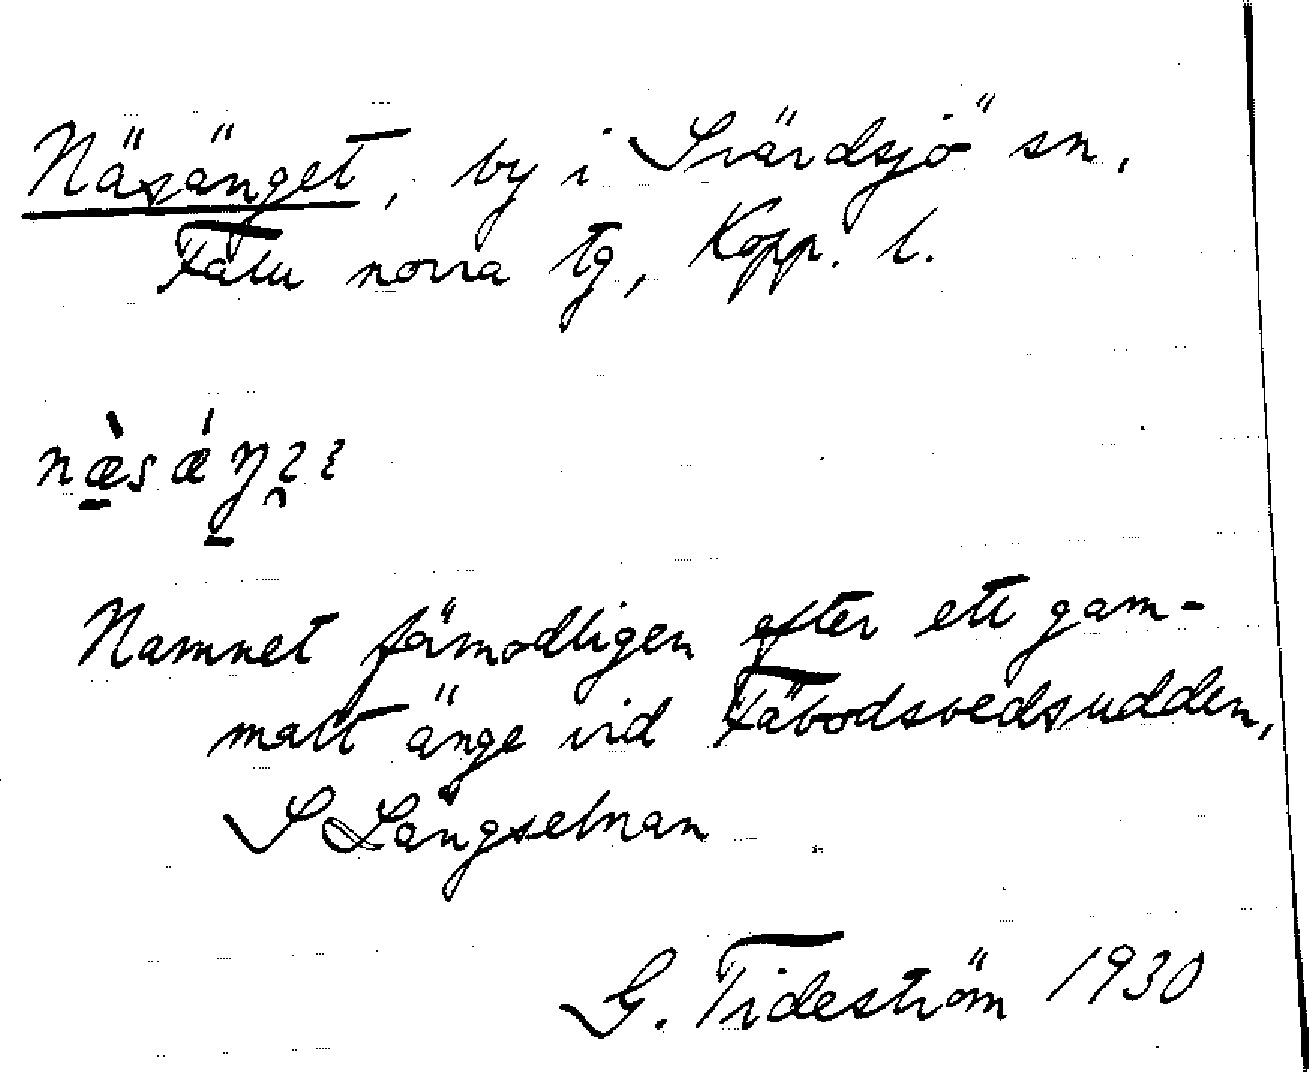 Näsänget, by i Svärdsjö sn,
Falu norra tg, Kopp. l.
Namnet förmodligen efter ett gam-
malt änge vid Fäbodsvedsudden,
S Långselnan
G. Tideström 1930